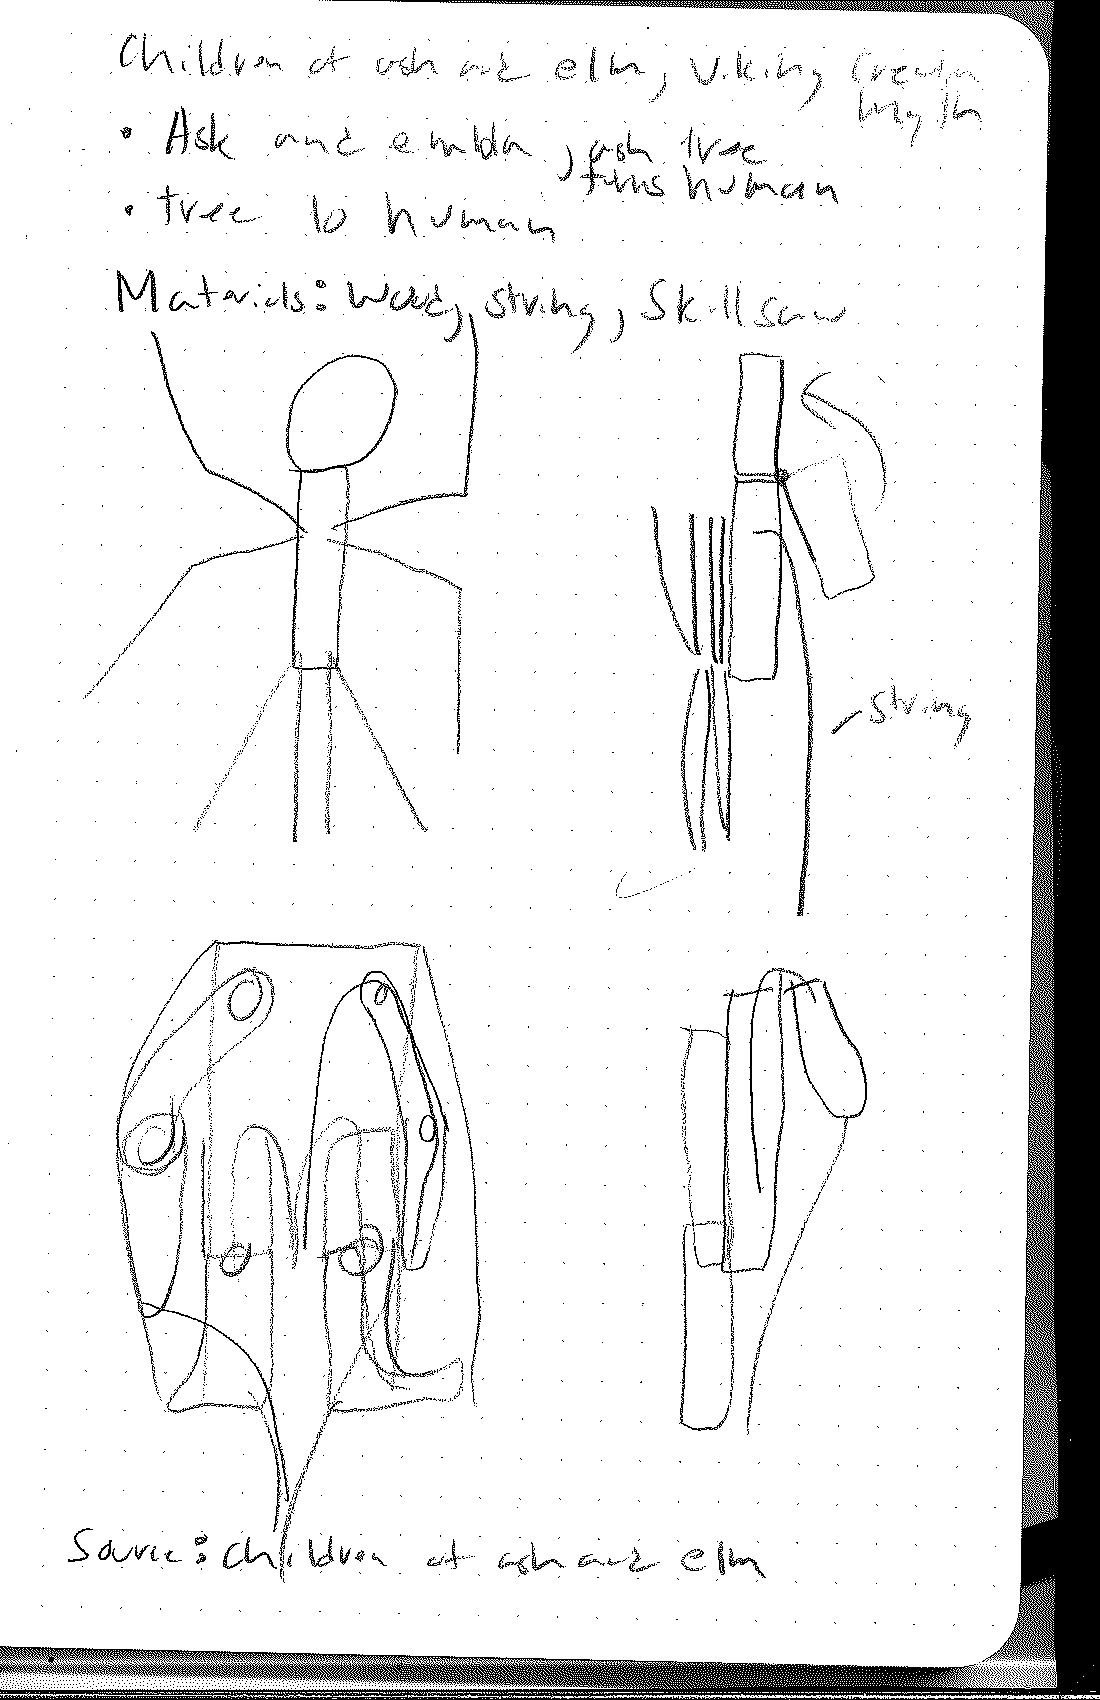 Children of ash and elm, Viking Creation
myth
• Ask and embla, ash tree
turns human
• tree to human
Materials: Wood, string, Skillsaw
string
Source: Children of ash and elm